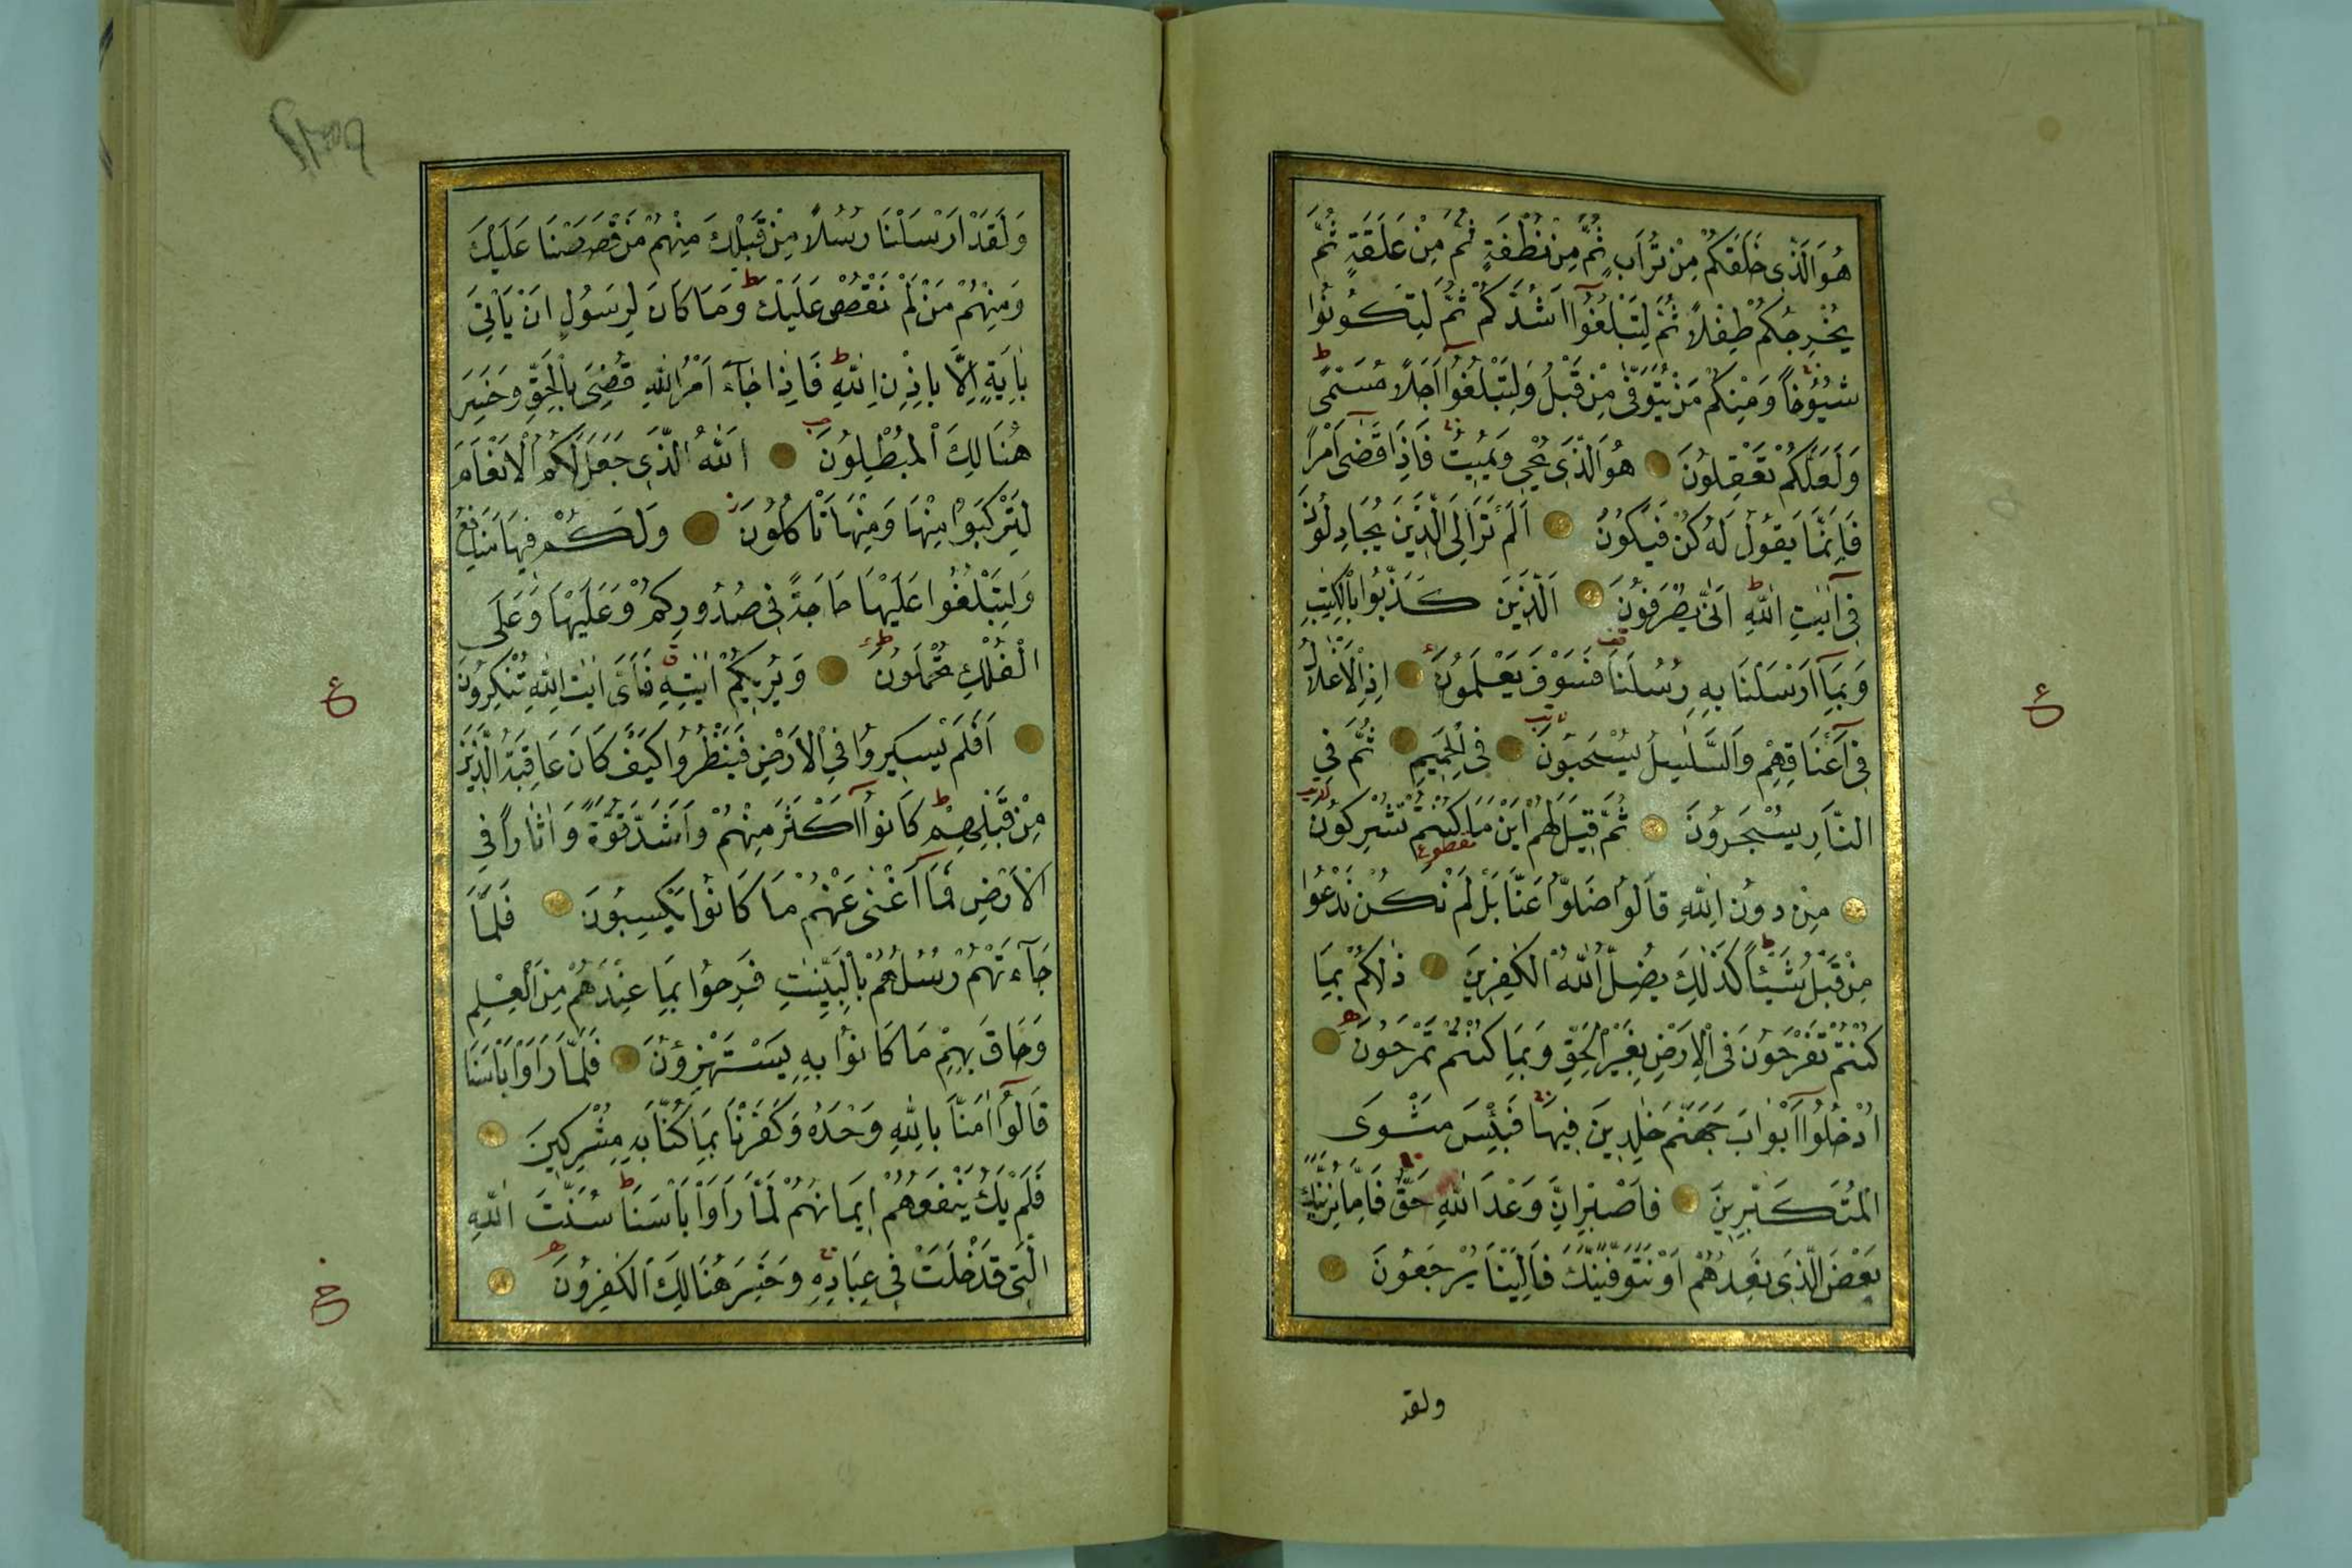 هُوَ الَّذِى خَلَقَكُمْ مِنْ تُرَابٍ ثُمَّ مِنْ نُطْفَةٍ ثُمَّ مِنْ عَلَقَةٍ ثُمَّ
يُخْرِجُكُمْ طِفْلًا ثُمَّ لِتَبْلُغُوٓا اَشُدَّكُمْ ثُمَّ لِتَكُونُوا
شُيُوخًا وَمِنْكُمْ مَنْ يُتَوَفّٰى مِنْ قَبْلُ وَلِتَبْلُغُوٓا اَجَلًا مُسَمًّى ط
وَلَعَلَّكُمْ تَعْقِلُونَ هُوَ الَّذِى يُحْيِى وَيُمِيتُ فَاِذَا قَضٰٓى اَمْرًا
فَاِنَّمَا يَقُولُ لَهُ كُنْ فَيَكُونُ اَلَمْ تَرَ اِلَى الَّذِينَ يُجَادِلُونَ
فِىٓ اٰيَاتِ اللّٰهِ ط اَنّٰى يُصْرَفُونَ اَلَّذِينَ كَذَّبُوا بِالْكِتٰبِ
وَبِمَٓا اَرْسَلْنَا بِهِ رُسُلَنَا فَسَوْفَ يَعْلَمُونَ اِذِ الْاَغْلَالُ
فِىٓ اَعْنَاقِهِمْ وَالسَّلٰسِلُ يُسْحَبُونَ فِى الْحَمِيمِ ثُمَّ فِى
النَّارِ يُسْجَرُونَ ثُمَّ قِيلَ لَهُمْ اَيْنَ مَا كُنْتُمْ تُشْرِكُونَ
مِنْ دُونِ اللّٰهِ قَالُوا ضَلُّوا عَنَّا بَلْ لَمْ نَكُنْ نَدْعُوا
مِنْ قَبْلُ شَيْئًا ط كَذٰلِكَ يُضِلُّ اللّٰهُ الْكٰفِرِينَ ذٰلِكُمْ بِمَا
كُنْتُمْ تَفْرَحُونَ فِى الْاَرْضِ بِغَيْرِ الْحَقِّ وَبِمَا كُنْتُمْ تَمْرَحُونَ
اُدْخُلُوٓا اَبْوَابَ جَهَنَّمَ خٰلِدِينَ فِيهَا فَبِئْسَ مَثْوَى
الْمُتَكَبِّرِينَ فَاصْبِرْ اِنَّ وَعْدَ اللّٰهِ حَقٌّ فَاِمَّا نُرِيَنَّكَ
بَعْضَ الَّذِى نَعِدُهُمْ اَوْ نَتَوَفَّيَنَّكَ فَاِلَيْنَا يُرْجَعُونَ
ولقد
وَلَقَدْ اَرْسَلْنَا رُسُلًا مِنْ قَبْلِكَ مِنْهُمْ مَنْ قَصَصْنَا عَلَيْكَ
وَمِنْهُمْ مَنْ لَمْ نَقْصُصْ عَلَيْكَ ط وَمَا كَانَ لِرَسُولٍ اَنْ يَأْتِىَ
بِاٰيَةٍ اِلَّا بِاِذْنِ اللّٰهِ ط فَاِذَا جَٓاءَ اَمْرُ اللّٰهِ قُضِىَ بِالْحَقِّ وَخَسِرَ
هُنَالِكَ الْمُبْطِلُونَ اَللّٰهُ الَّذِى جَعَلَ لَكُمُ الْاَنْعَامَ
لِتَرْكَبُوا مِنْهَا وَمِنْهَا تَأْكُلُونَ وَلَكُمْ فِيهَا مَنَافِعُ
وَلِتَبْلُغُوا عَلَيْهَا حَاجَةً فِى صُدُورِكُمْ وَعَلَيْهَا وَعَلَى
الْفُلْكِ تُحْمَلُونَ وَيُرِيكُمْ اٰيٰتِهِ فَاَىَّ اٰيٰتِ اللّٰهِ تُنْكِرُونَ
اَفَلَمْ يَسِيرُوا فِى الْاَرْضِ فَيَنْظُرُوا كَيْفَ كَانَ عَاقِبَةُ الَّذِينَ
مِنْ قَبْلِهِمْ ط كَانُوٓا اَكْثَرَ مِنْهُمْ وَاَشَدَّ قُوَّةً وَاٰثَارًا فِى
الْاَرْضِ فَمَٓا اَغْنٰى عَنْهُمْ مَا كَانُوا يَكْسِبُونَ فَلَمَّا
جَٓاءَتْهُمْ رُسُلُهُمْ بِالْبَيِّنٰتِ فَرِحُوا بِمَا عِنْدَهُمْ مِنَ الْعِلْمِ
وَحَاقَ بِهِمْ مَا كَانُوا بِهِ يَسْتَهْزِؤُنَ فَلَمَّا رَاَوْا بَأْسَنَا
قَالُوٓا اٰمَنَّا بِاللّٰهِ وَحْدَهُ وَكَفَرْنَا بِمَا كُنَّا بِهِ مُشْرِكِينَ
فَلَمْ يَكُ يَنْفَعُهُمْ اِيمَانُهُمْ لَمَّا رَاَوْا بَأْسَنَا ط سُنَّتَ اللّٰهِ
الَّتِى قَدْ خَلَتْ فِى عِبَادِهِ وَخَسِرَ هُنَالِكَ الْكٰفِرُونَ